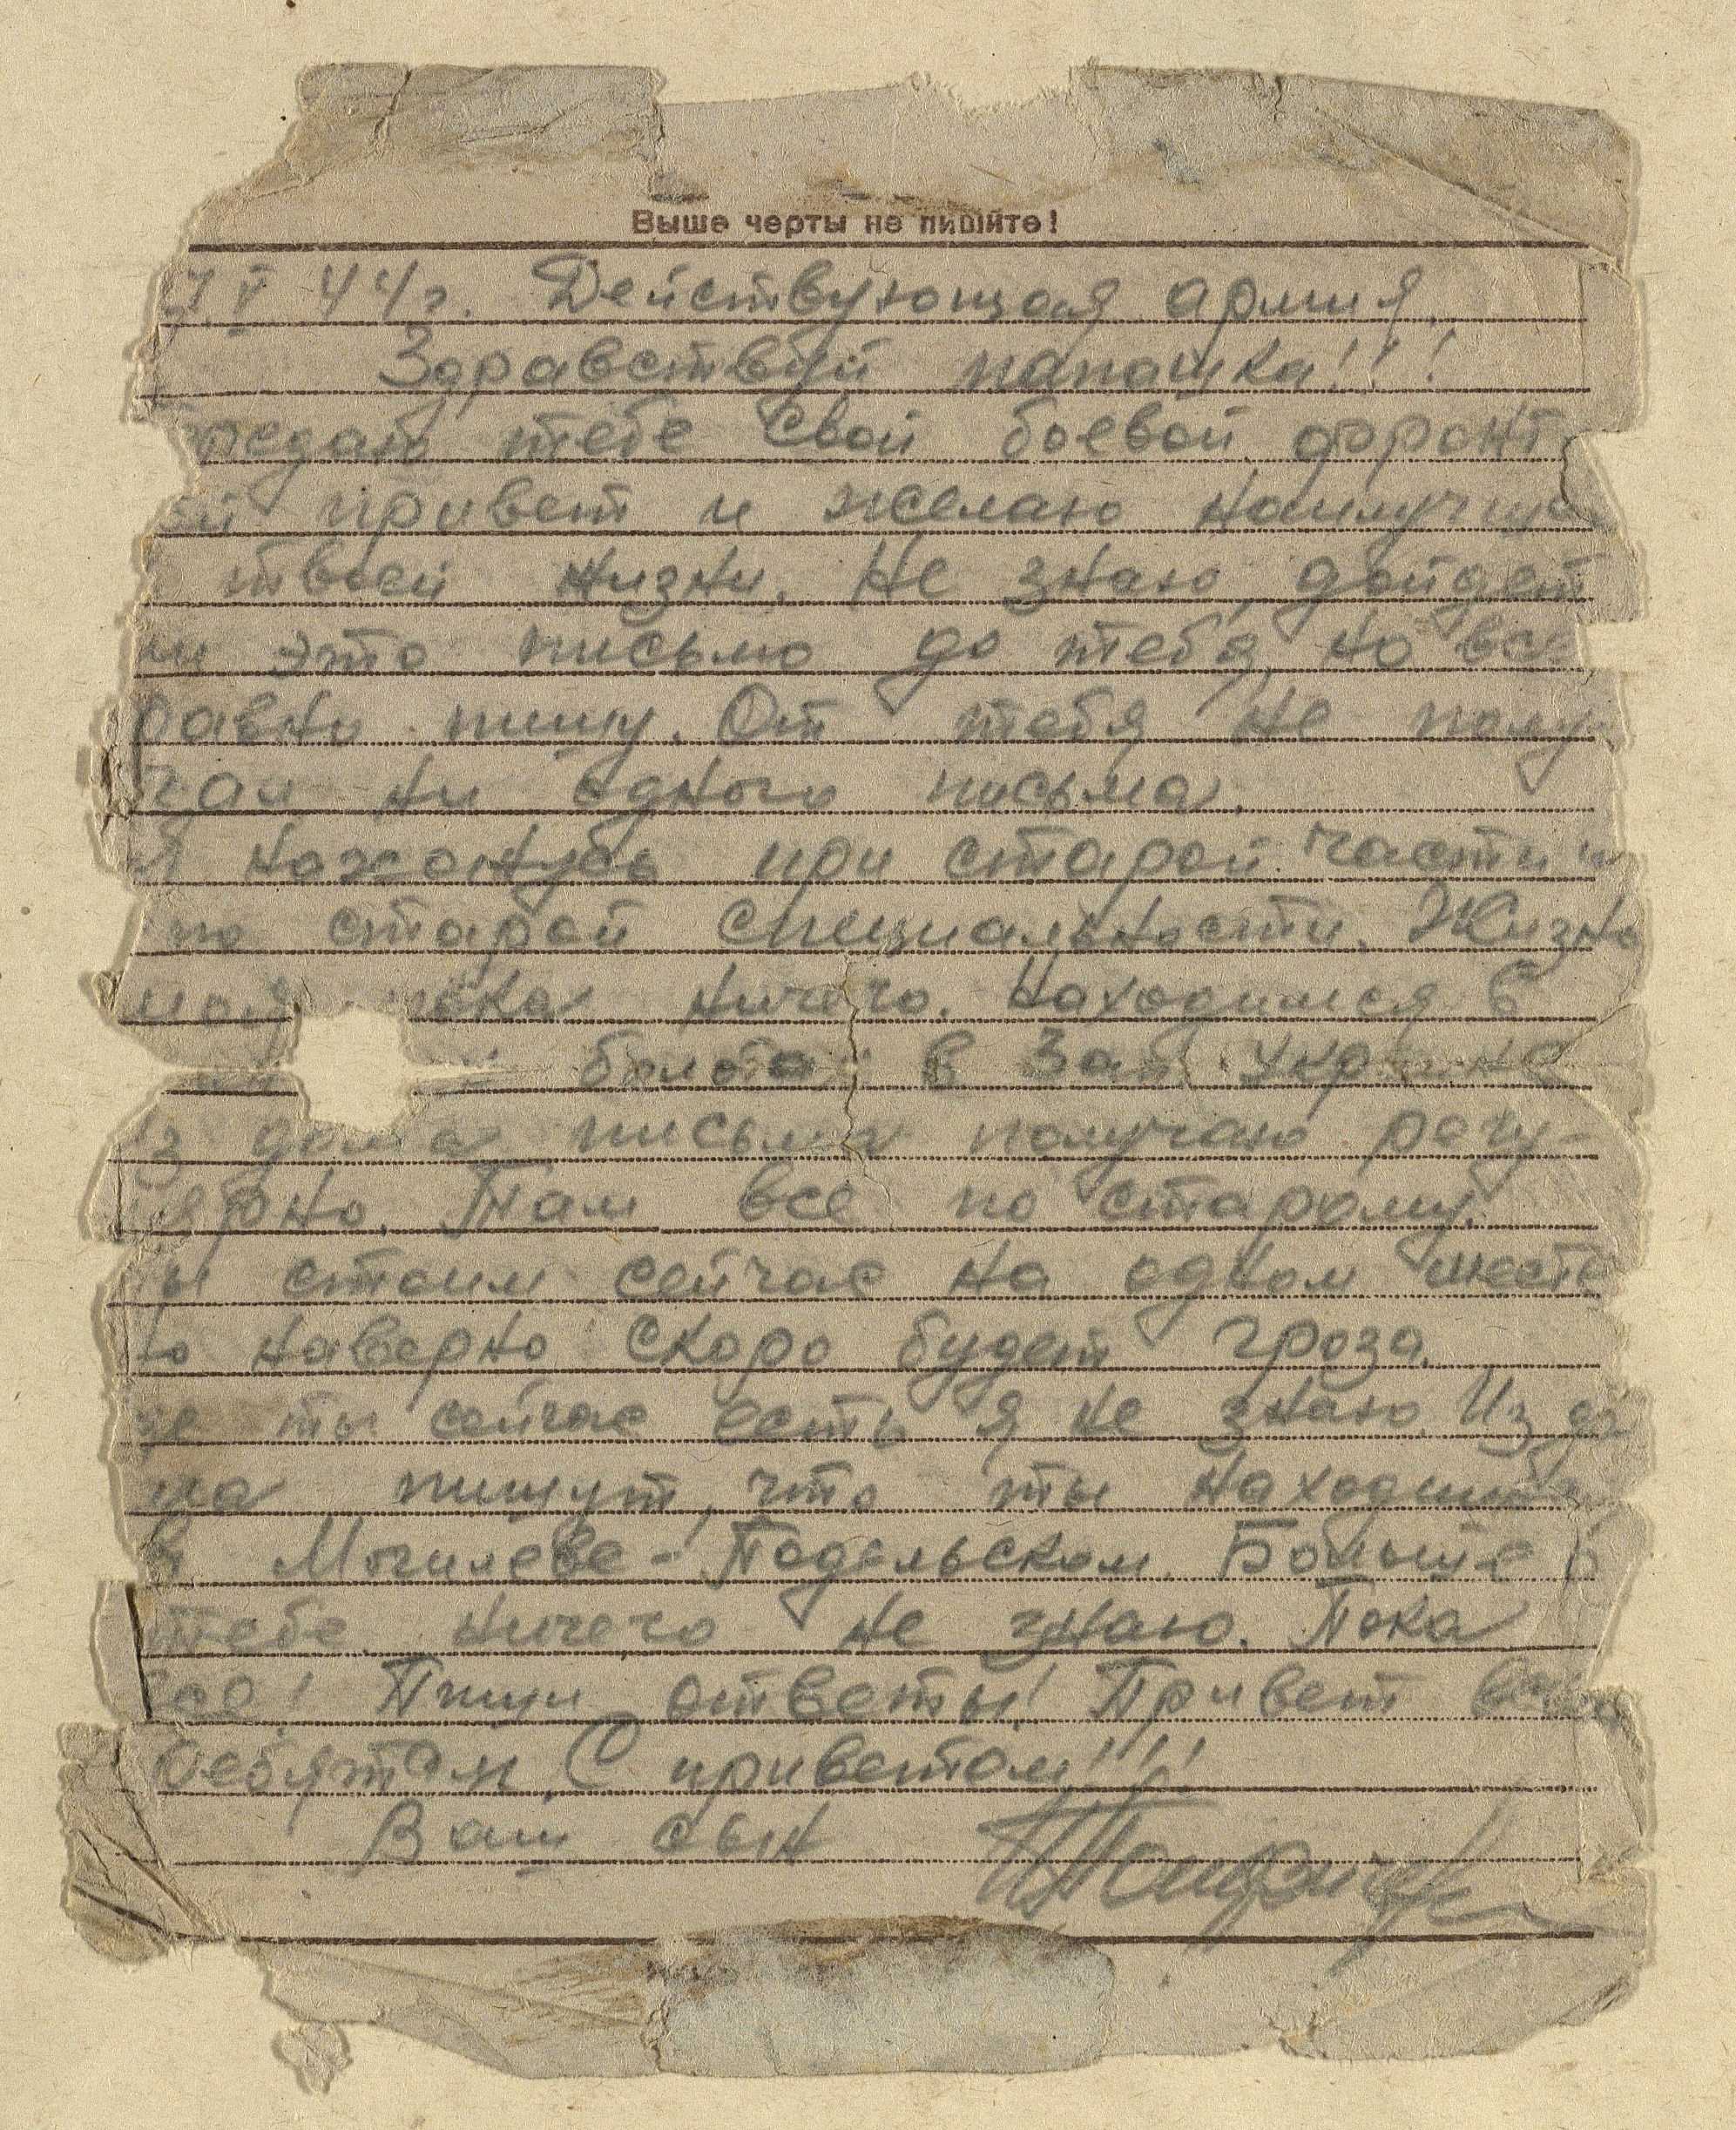 Выше черты не пишите!
7.V 44г. Действующая армия.
Здравствуй папашка!!!
редаю тебе свой боевой фронт
ой привет и желаю наилучше
твоей жизни. Не знаю, дойдет
ли это письмо до тебя, но все
равно пишу. От тебя не полу-
чал ни одного письма.
Я нахожусь при старой части и
по старой специальности. Жизнь
моя пока ничего. Находимся в
болота в Зап. Украине
из дома письма получаю регу-
лярно. Там все по старому.
ы стоим сейчас на одном месте
но наверно скоро будет гроза.
де ты сейчас есть я не знаю. Из до
ма пишут, что ты находишься
в Могилеве-Подольском. Больше о
тебе ничего не знаю. Пока
все! Пиши ответы! Привет всем
ребятам. С приветом!!!
Ваш сын